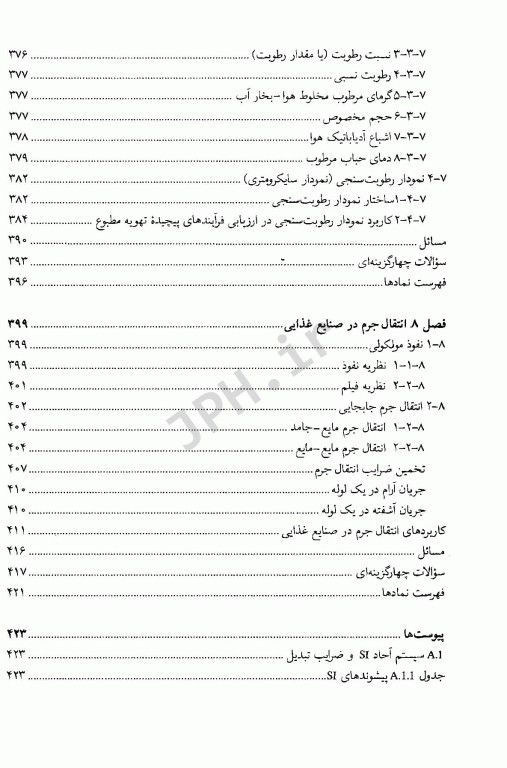 ۳-۳-۷ نسبت رطوبت (یا مقدار رطوبت) ۳۷۶
۴-۳-۷ رطوبت نسبی ۳۷۷
۵-۳-۷ گرمای مرطوب مخلوط هوا-بخار آب ۳۷۷
۶-۳-۷ حجم مخصوص ۳۷۷
۷-۳-۷ اشباع آدیاباتیک هوا ۳۷۸
۸-۳-۷ دمای حباب مرطوب ۳۷۹
۴-۷ نمودار رطوبت‌سنجی (نمودار سایکرومتری) ۳۸۲
۱-۴-۷ ساختار نمودار رطوبت‌سنجی ۳۸۲
۲-۴-۷ کاربرد نمودار رطوبت‌سنجی در ارزیابی فرآیندهای پیچیدهٔ تهویه مطبوع ۳۸۴
مسائل ۳۹۰
سؤالات چهارگزینه‌ای ۳۹۳
فهرست نمادها ۳۹۶
فصل ۸ انتقال جرم در صنایع غذایی ۳۹۹
۱-۸ نفوذ مولکولی ۳۹۹
۱-۱-۸ نظریه نفوذ ۳۹۹
۲-۲-۸ نظریه فیلم ۴۰۱
۲-۸ انتقال جرم جابجایی ۴۰۲
۱-۲-۸ انتقال جرم مایع-جامد ۴۰۴
۲-۲-۸ انتقال جرم مایع-مایع ۴۰۴
تخمین ضرایب انتقال جرم ۴۰۷
جریان آرام در یک لوله ۴۱۰
جریان آشفته در یک لوله ۴۱۰
کاربردهای انتقال جرم در صنایع غذایی ۴۱۱
مسائل ۴۱۶
سؤالات چهارگزینه‌ای ۴۱۷
فهرست نمادها ۴۲۱
پیوست‌ها ۴۲۳
A.1 سیستم آحاد SI و ضرایب تبدیل ۴۲۳
جدول A.1.1 پیشوندهای SI ۴۲۳
JPH.ir